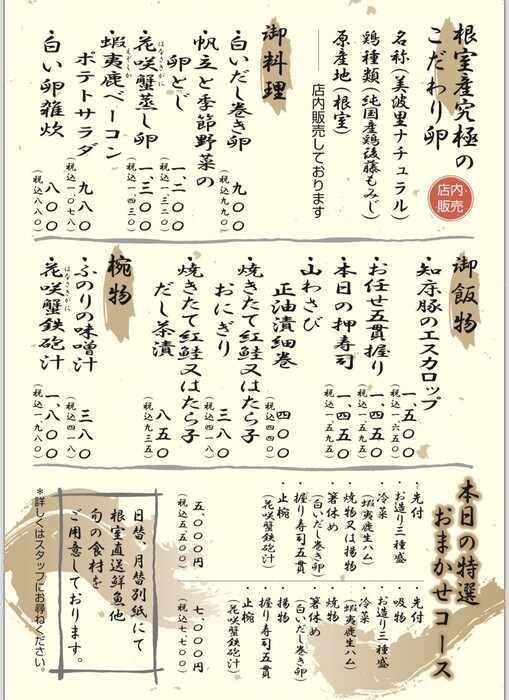 根室産究極の
こだわり卵
店内
販売
名称(美波里ナチュラル)
鶏種類(純国産鶏後藤もみじ)
原産地(根室)
店内販売しております
御料理
・白いだし巻き卵
九〇〇
(税込九九〇)
・帆立と季節野菜の
卵とじ
一、二〇〇
(税込一、三二〇)
・花咲蟹蒸し卵
はなさきがに
一、三〇〇
(税込一、四三〇)
・蝦夷鹿ベーコン
えぞしか
ポテトサラダ
九八〇
(税込一、〇七八)
・白い卵雑炊
八〇〇
(税込八八〇)
御飯物
・知床豚のエスカロップ
一、五〇〇
(税込一、六五〇)
・お任せ五貫握り
一、四五〇
(税込一、五九五)
・本日の押寿司
一、四五〇
(税込一、五九五)
・山わさび
正油漬細巻
四〇〇
(税込四四〇)
・焼きたて紅鮭又はたら子
おにぎり
三八〇
(税込四一八)
・焼きたて紅鮭又はたら子
だし茶漬
八五〇
(税込九三五)
椀物
・ふのりの味噌汁
三八〇
(税込四一八)
・花咲蟹鉄砲汁
はなさきがに
一、八〇〇
(税込一、九八〇)
本日の特選
おまかせコース
・先付
・お造り三種盛
・冷菜
(蝦夷鹿生ハム)
・焼物又は揚物
・箸休め
(白いだし巻き卵)
・握り寿司五貫
・止椀
(花咲蟹鉄砲汁)
五、〇〇〇円
(税込五、五〇〇)
・先付
・吸物
・お造り三種盛
・冷菜
(蝦夷鹿生ハム)
・焼物
・箸休め
(白いだし巻き卵)
・揚物
・握り寿司五貫
・止椀
(花咲蟹鉄砲汁)
七、〇〇〇円
(税込七、七〇〇)
日替、月替別紙にて
根室直送鮮魚他
旬の食材を
ご用意しております。
*詳しくはスタッフにお尋ねください。